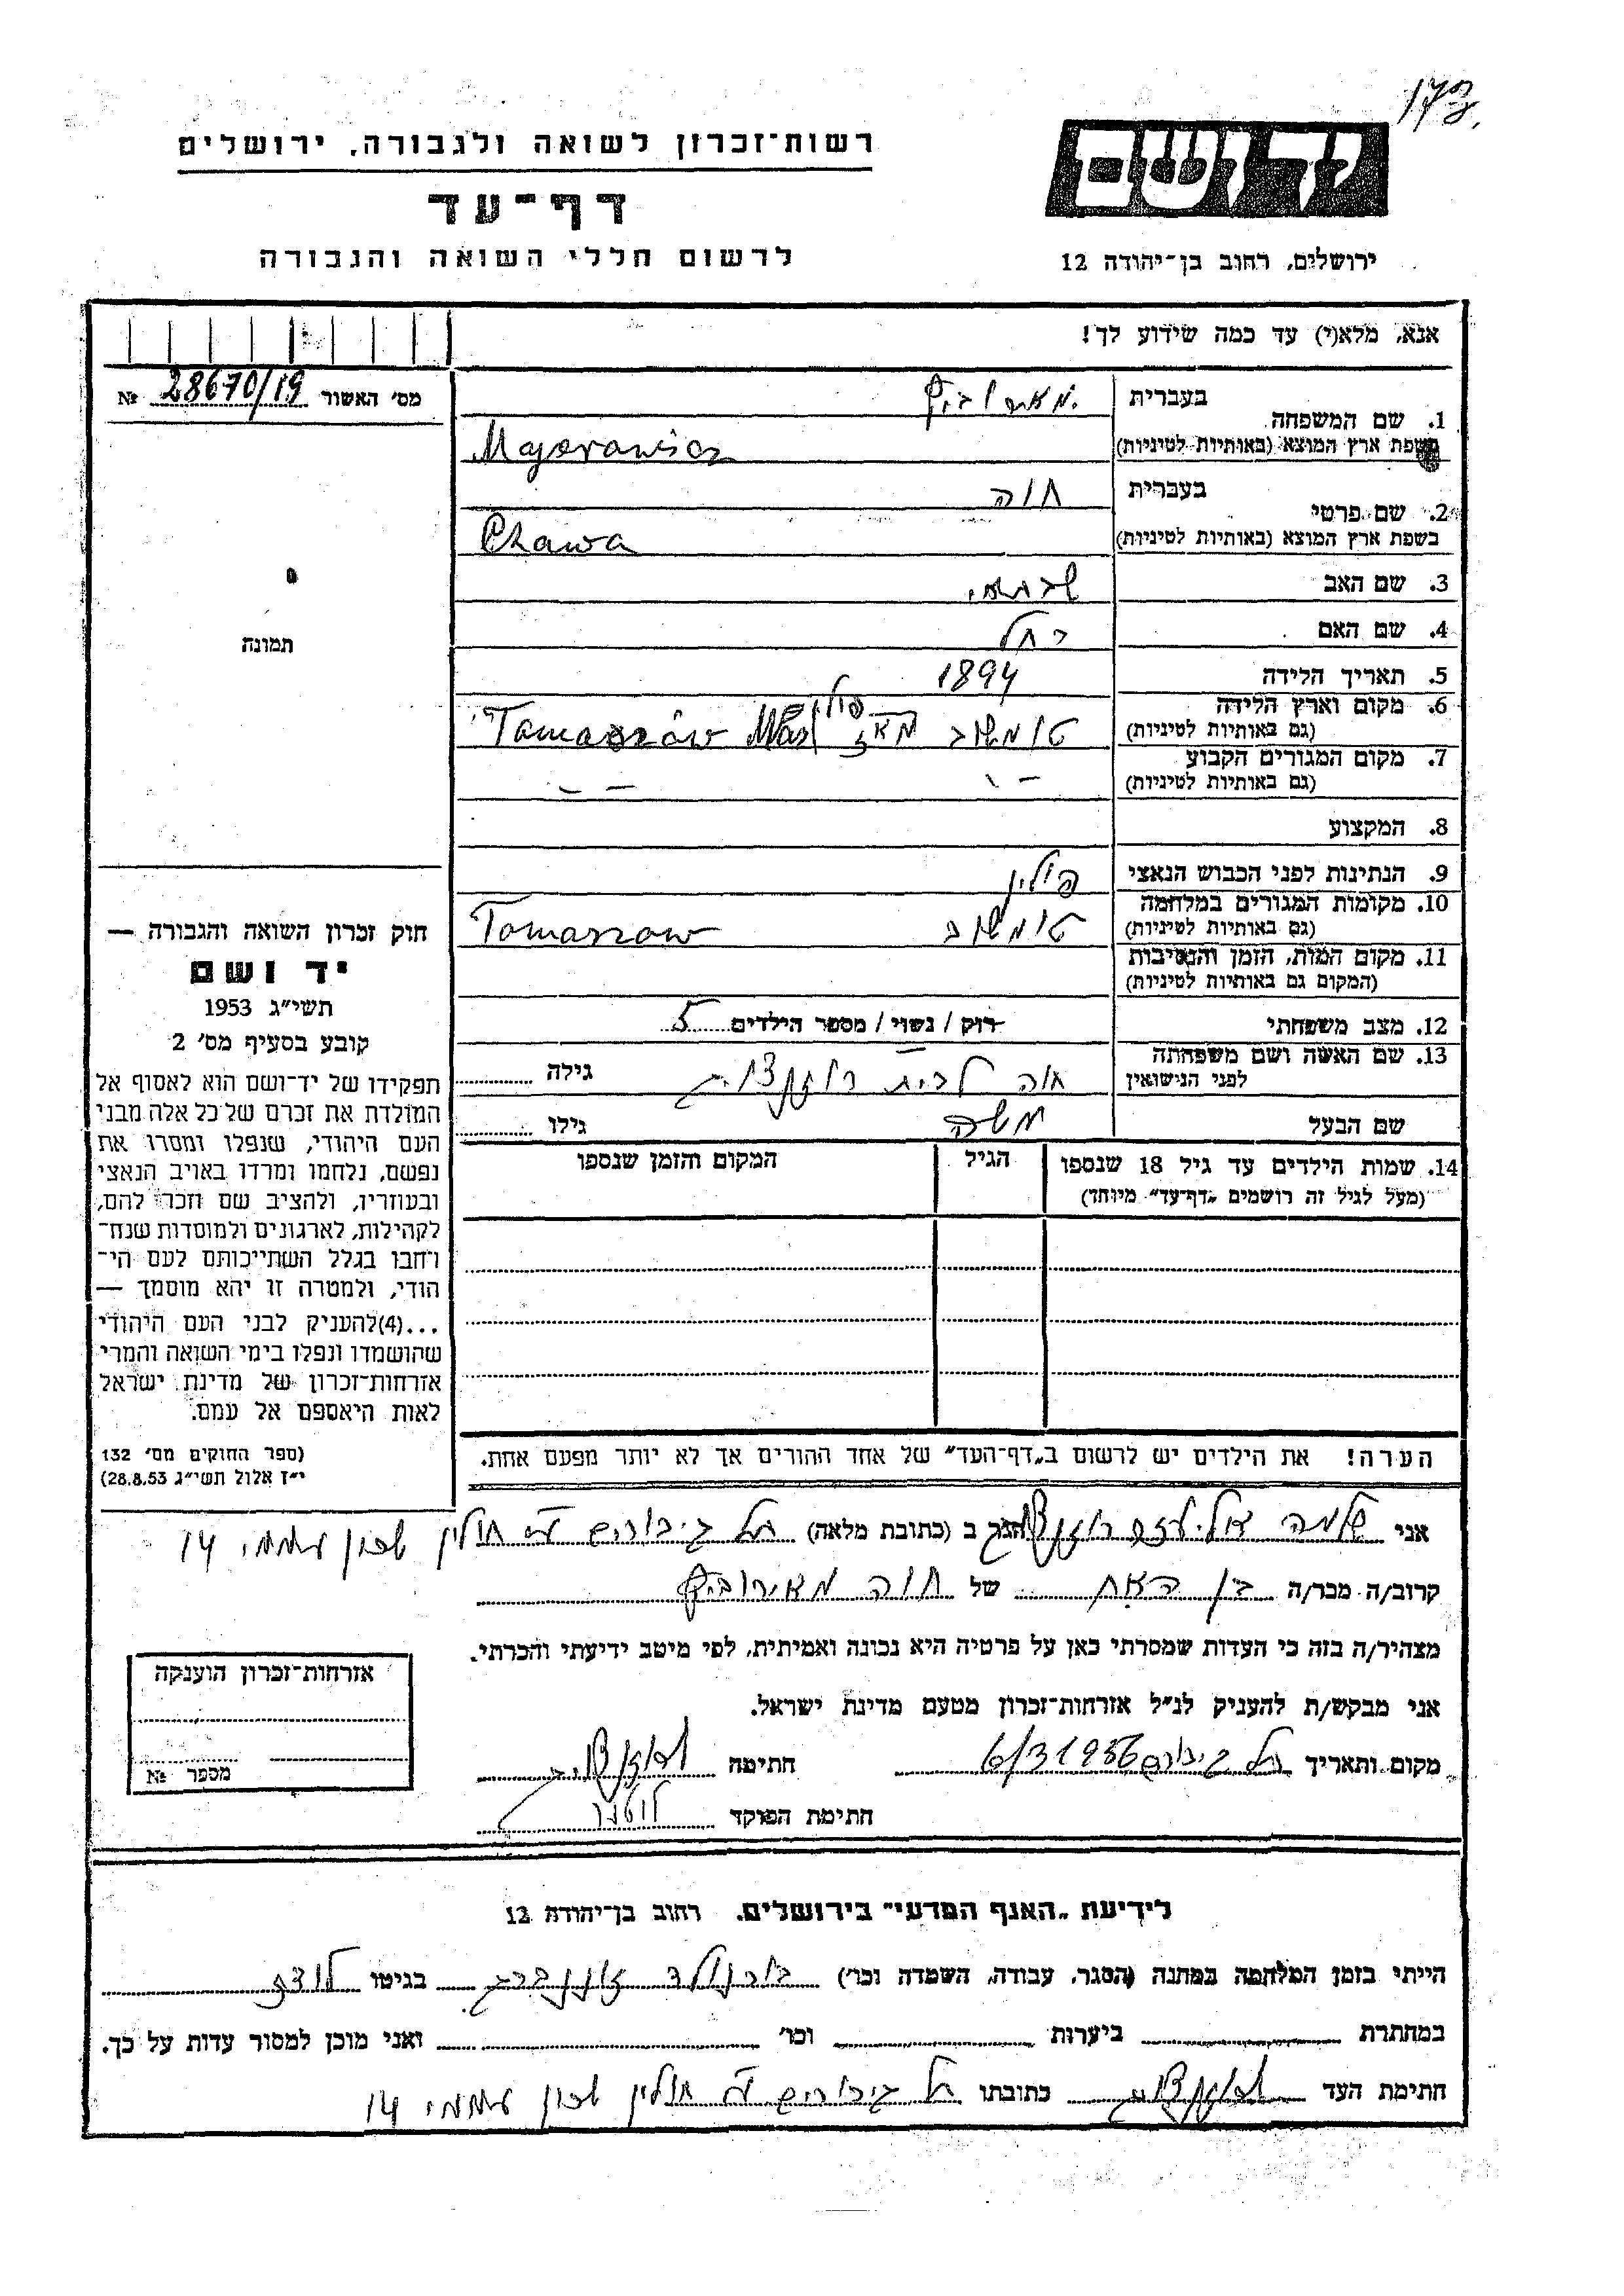 רשות־זכרון לשואה ולגבורה, ירושלים
דף־עד
לרשום חללי השואה והגבורה
יד ושם
ירושלים, רחוב בן־יהודה 12
אנא, מלא(י) עד כמה שידוע לך!
מס׳ האשור 28670/19 №
תמונה
1. שם המשפחה
בעברית
בשפת ארץ המוצא (באותיות לטיניות) Majerowicz
2. שם פרטי
בעברית חוה
בשפת ארץ המוצא (באותיות לטיניות) Chawa
3. שם האב שבתאי
4. שם האם רחל
5. תאריך הלידה 1894
6. מקום וארץ הלידה
(גם באותיות לטיניות) טומשוב מאז פולין Tomaszów Maz
7. מקום המגורים הקבוע
(גם באותיות לטיניות) – ״ – ״
8. המקצוע
9. הנתינות לפני הכבוש הנאצי פולין
10. מקומות המגורים במלחמה
(גם באותיות לטיניות) טומשוב Tomaszow
11. מקום המות, הזמן והנסיבות
(המקום גם באותיות לטיניות)
12. מצב משפחתי רוק / נשוי / מספר הילדים 5
13. שם האשה ושם משפחתה
לפני הנישואין חוה לבית רוזנצויג גילה
שם הבעל משה גילו
14. שמות הילדים עד גיל 18 שנספו הגיל המקום והזמן שנספו
(מעל לגיל זה רושמים „דף־עד״ מיוחד)
הערה! את הילדים יש לרשום ב„דף־העד״ של אחד ההורים אך לא יותר מפעם אחת.
חוק זכרון השואה והגבורה —
יד ושם
תשי״ג 1953
קובע בסעיף מס׳ 2
תפקידו של יד־ושם הוא לאסוף אל
המולדת את זכרם של כל אלה מבני
העם היהודי, שנפלו ומסרו את
נפשם, נלחמו ומרדו באויב הנאצי
ובעוזריו, ולהציב שם וזכר להם,
לקהילות, לארגונים ולמוסדות שנח־
רבו בגלל השתייכותם לעם הי־
הודי, ולמטרה זו יהא מוסמך —
...(4)להעניק לבני העם היהודי
שהושמדו ונפלו בימי השואה והמרי
אזרחות־זכרון של מדינת ישראל
לאות היאספם אל עמם.
(ספר החוקים מס׳ 132
י״ז אלול תשי״ג 28.8.53)
אני שלמה אליעזר רוזנצויג הגר ב (כתובת מלאה) תל גיבורים ע״י חולין שכון עממי 14
קרוב/ה מכר/ה בן האח של חוה מאירוביץ
מצהיר/ה בזה כי העדות שמסרתי כאן על פרטיה היא נכונה ואמיתית, לפי מיטב ידיעתי והכרתי.
אני מבקש/ת להעניק לנ״ל אזרחות־זכרון מטעם מדינת ישראל.
מקום ותאריך תל גיבורים 6/3 1956 חתימה
חתימת הפוקד
אזרחות־זכרון הוענקה
מספר №
לידיעת „האנף המדעי״ בירושלים, רחוב בן־יהודה 12
הייתי בזמן המלחמה במחנה (הסגר, עבודה, השמדה וכו׳) בגיטו לודז
במחתרת ביערות וכו׳ ואני מוכן למסור עדות על כך.
חתימת העד כתובתו תל גיבורים ע״י חולין שכון עממי 14